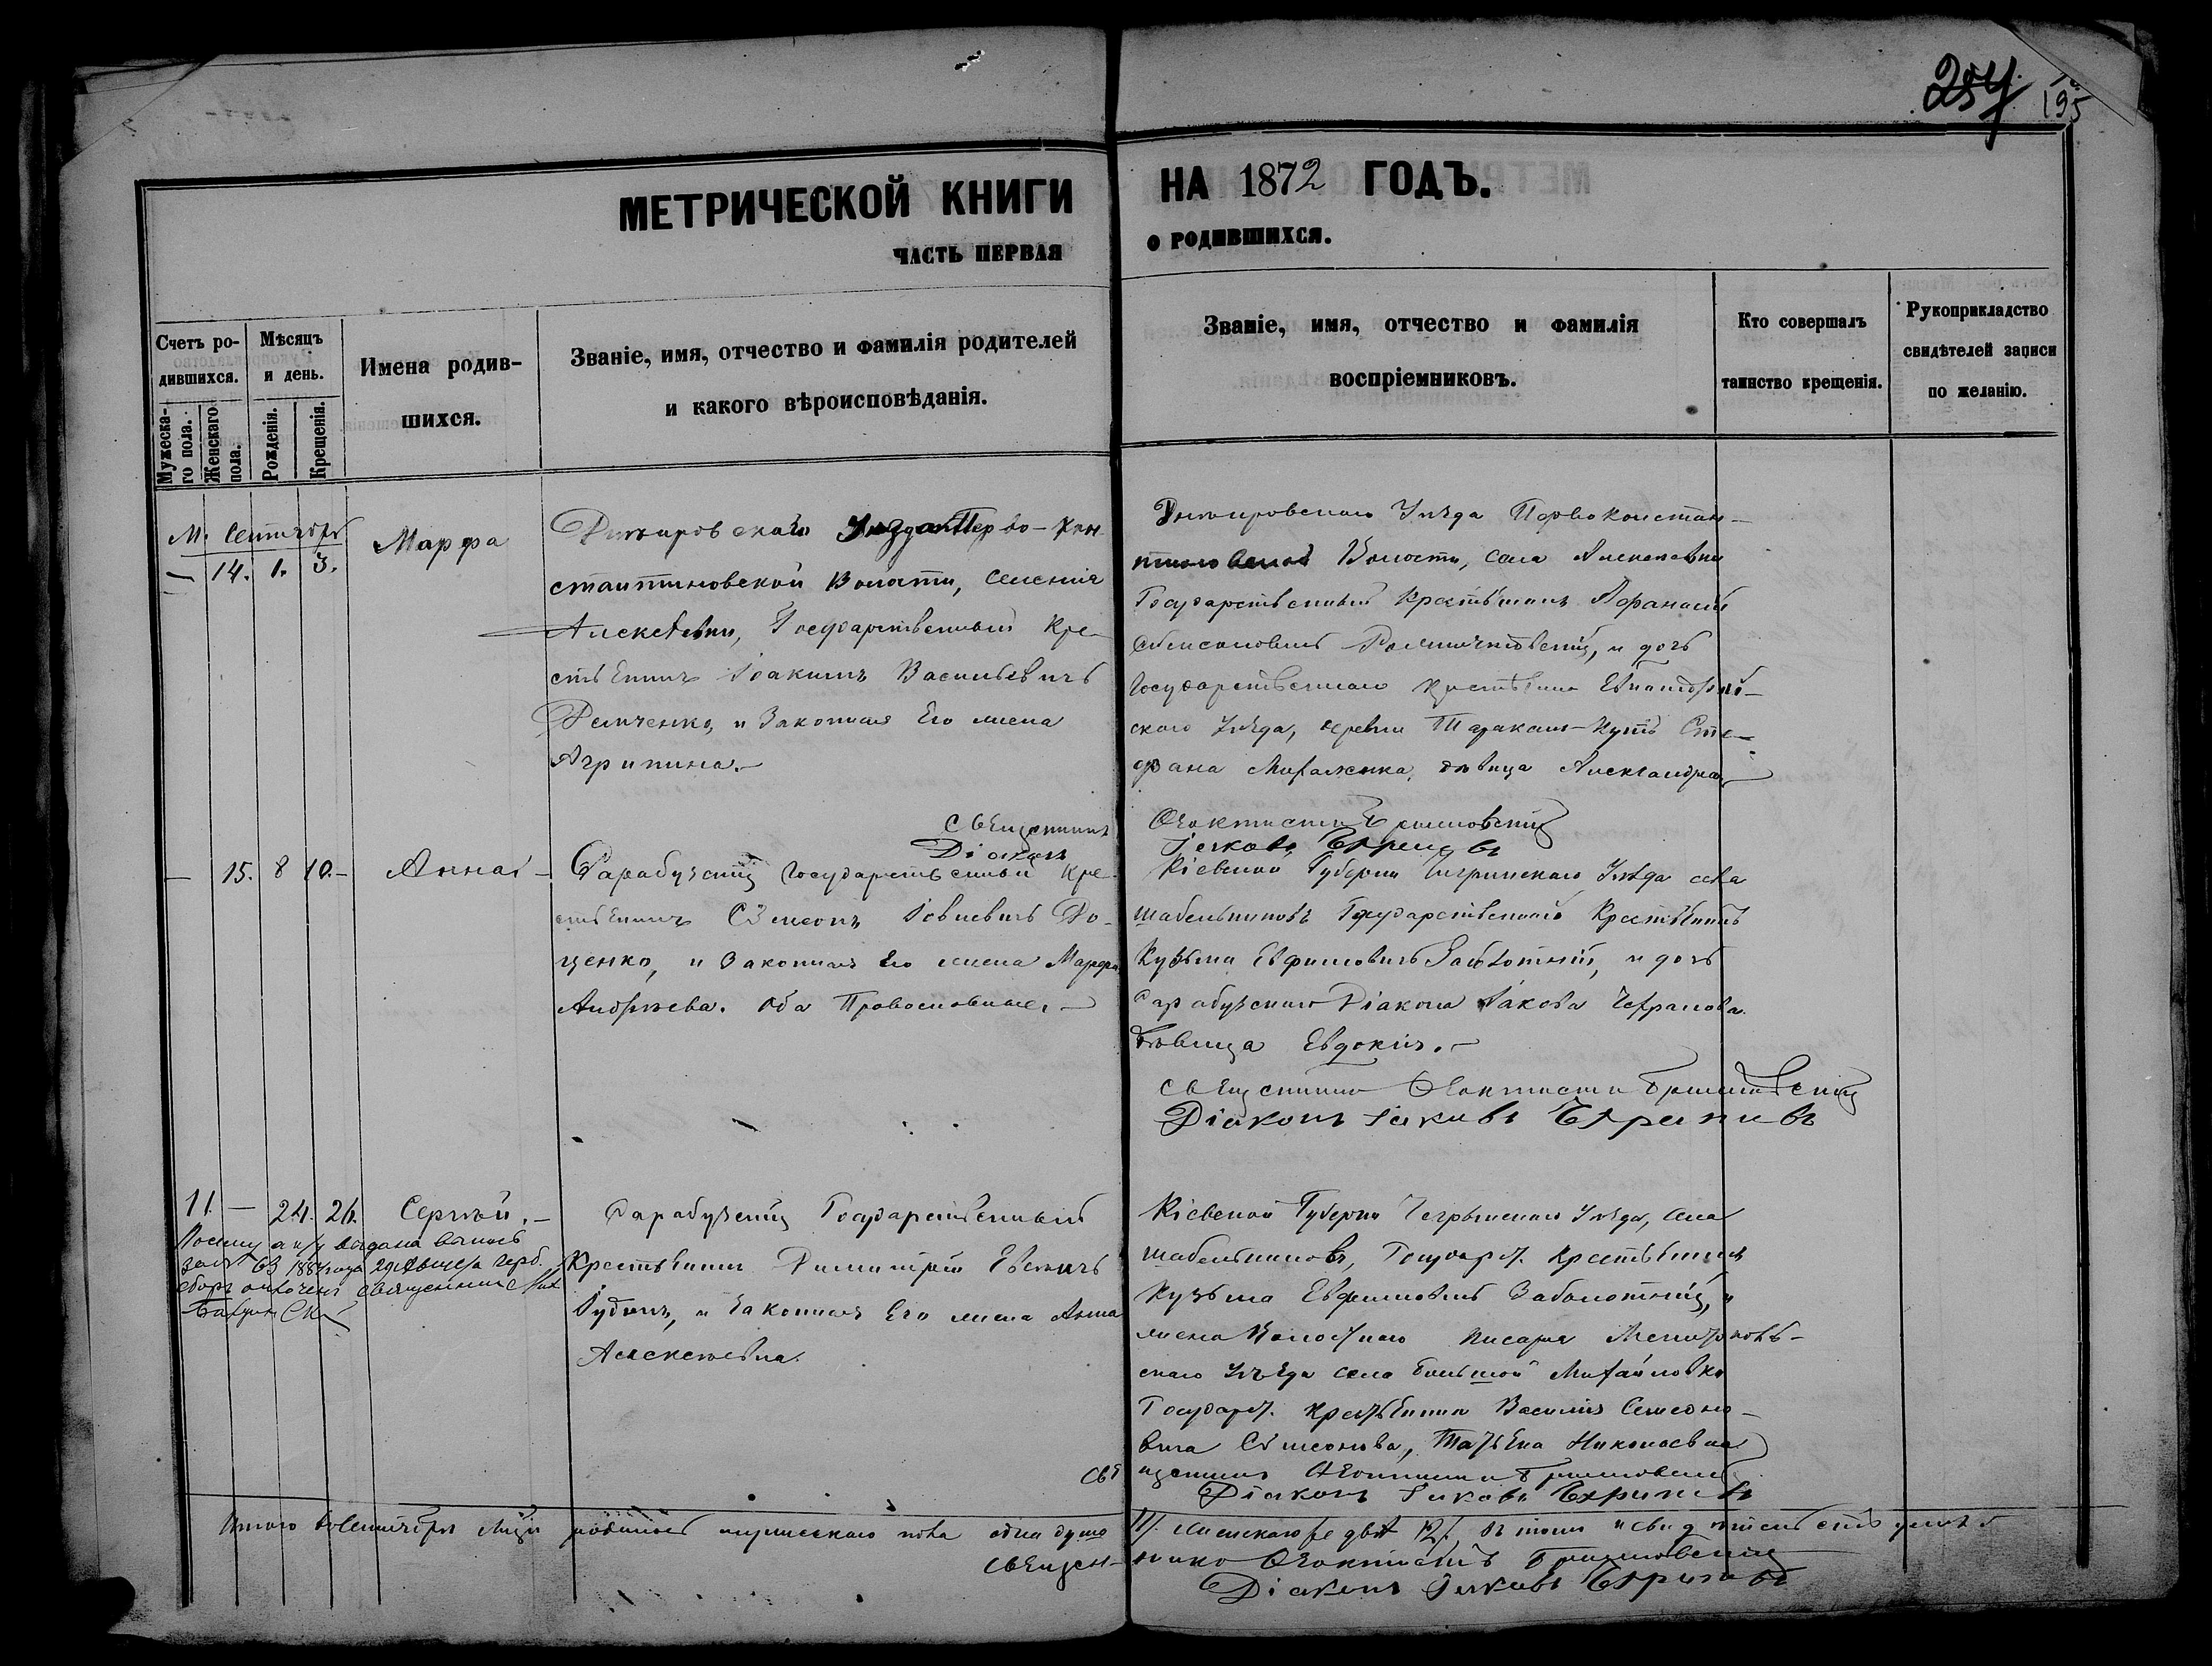 257
195
МЕТРИЧЕСКОЙ КНИГИ
ЧАСТЬ ПЕРВАЯ
НА 1872 ГОДЪ.
О РОДИВШИХСЯ.
Счетъ ро-
дившихся.
Мужеска-
го пола.
Женскаго
пола.
Мѣсяцъ
и день.
Рожденія.
Крещенія.
Имена родив-
шихся.
Званіе, имя, отчество и фамилія родителей
и какого вѣроисповѣданія.
Званіе, имя, отчество и фамилія
воспріемниковъ.
Кто совершалъ
таинство крещенія.
Рукоприкладство
свидѣтелей записи
по желанію.
М. Сентябрь
— 14. 1. 3.
Марфа
Днѣпровскаго Уѣзда Перво-Кон-
стантиновской Волости, селенія
Алексѣевки, Государственный Кре-
стьянинъ Іоакимъ Васильевичъ
Демченко, и Законная Его жена
Агрипина.—
Днѣпровскаго Уѣзда Первоконстан-
тиновской Волости, села Алексѣевки
Государственный Крестьянинъ Афанасій
и дочь
Государственнаго крестьянина Евпаторій-
скаго Уѣзда, деревни Таракташ-Кутъ Сте-
фана Михаленка, дѣвица Александра
Священникъ Ѳеоктистъ
Діаконъ Іаковъ
— 15. 8 10.—
Анна —
Сарабузскій Государственный Кре-
стьянинъ Сѵмеонъ Іовлевичъ До-
ценко, и Законная Его жена Марфа
Андреева. Оба Православные.—
Кіевской Губерніи Чигринскаго Уѣзда села
Шабельниковъ Государственный Крестьянинъ
Кузьма Евфимовичъ Заболотній, и дочь
Сарабузскаго Діакона Іакова
дѣвица Евдокія.—
Священникъ Ѳеоктистъ
Діаконъ Іаковъ
11. — 24. 26.
Сергѣй.—
выдана выпись
за № 63 1889 года
сборъ священникъ
Сарабузскій Государственный
Крестьянинъ Димитрій
и Законная Его жена Анна
Алексѣевна.
Кіевской Губерніи Чегрынскаго Уѣзда, села
Шабельниковъ, Государст. Крестьянинъ
Кузьма Евфимовичъ Заболотній, и
жена Волостнаго писаря Мелитополь-
скаго Уѣзда села Большой Михайловки
Государст. Крестьянина Василія Семеоно-
вича Симеонова, Татьяна Николаевна
Священникъ Ѳеоктистъ
Діаконъ Іаковъ
Итого въ Сентябрѣ мѣсяцѣ родилось мужескаго пола одна душа /1/. женскаго двѣ /2/, въ томъ и свидѣтельствуемъ
Священникъ Ѳеоктистъ
Діаконъ Іаковъ